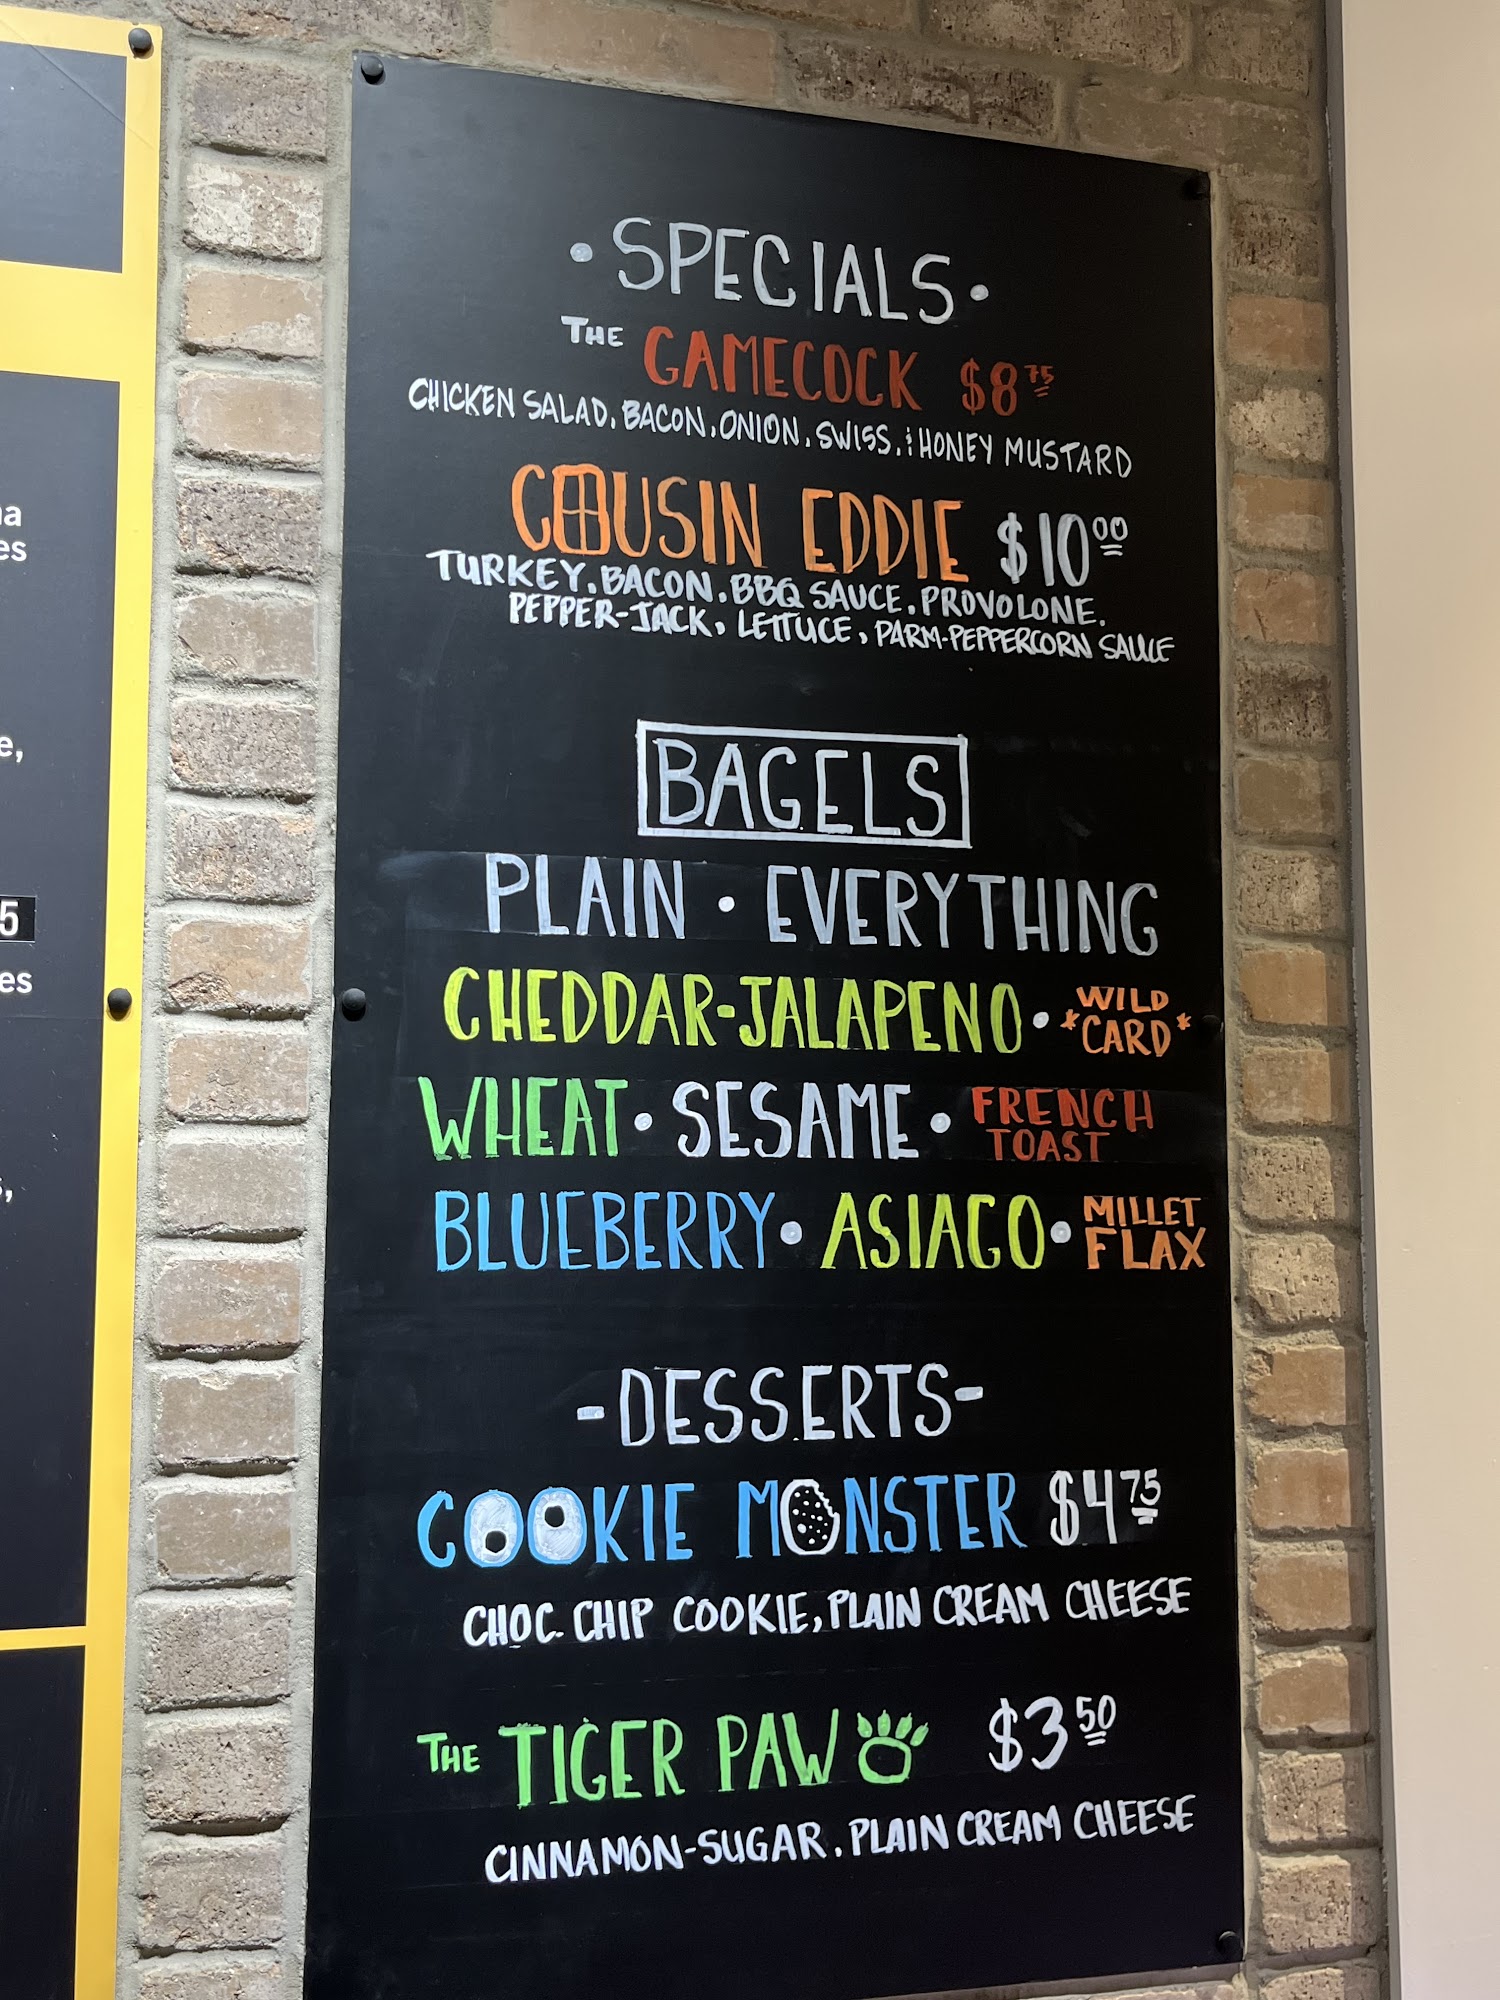 na
es
e,
5
es
s,
• SPECIALS •
THE GAMECOCK $8 75
CHICKEN SALAD, BACON, ONION, SWISS, & HONEY MUSTARD
COUSIN EDDIE $10 00
TURKEY, BACON, BBQ SAUCE, PROVOLONE,
PEPPER-JACK, LETTUCE, PARM-PEPPERCORN SAUCE
BAGELS
PLAIN • EVERYTHING
CHEDDAR-JALAPENO • *WILD CARD*
WHEAT • SESAME • FRENCH TOAST
BLUEBERRY • ASIAGO • MILLET FLAX
-DESSERTS-
COOKIE MONSTER $4 75
CHOC. CHIP COOKIE, PLAIN CREAM CHEESE
THE TIGER PAW $3 50
CINNAMON-SUGAR, PLAIN CREAM CHEESE